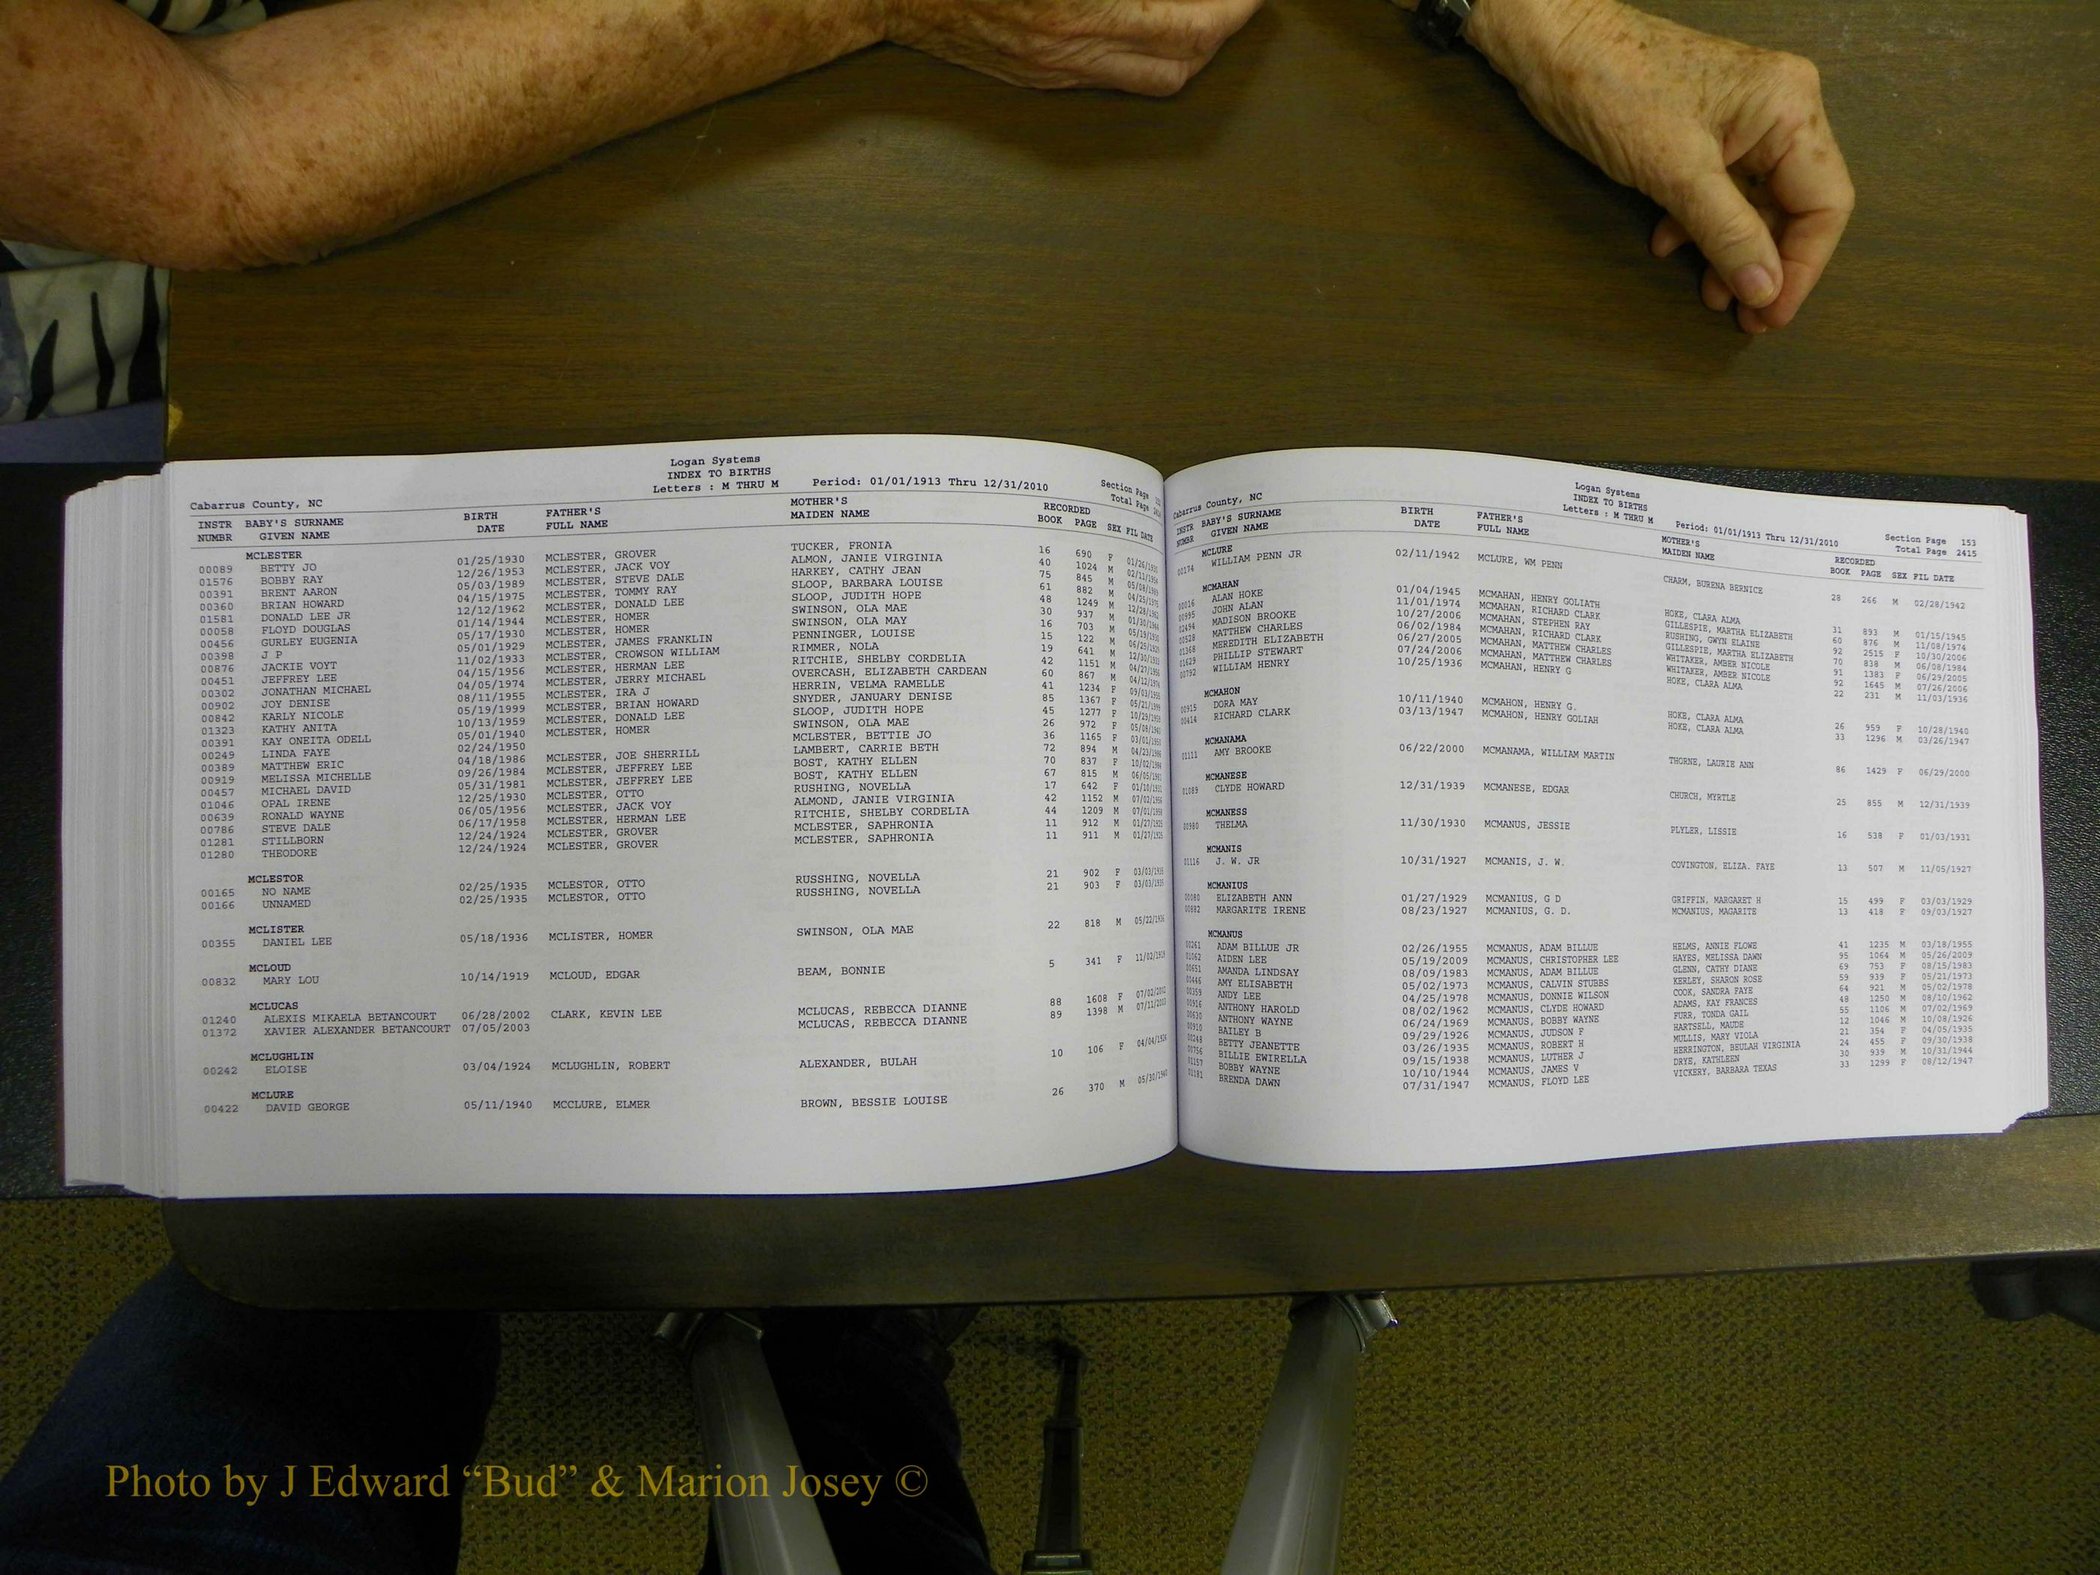 Logan Systems
INDEX TO BIRTHS
Cabarrus County, NC Letters : M THRU M Period: 01/01/1913 Thru 12/31/2010 Section Page
Total Page
INSTR BABY'S SURNAME BIRTH FATHER'S MOTHER'S RECORDED
NUMBR GIVEN NAME DATE FULL NAME MAIDEN NAME BOOK PAGE SEX FIL DATE
MCLESTER
00089 BETTY JO 01/25/1930 MCLESTER, GROVER TUCKER, FRONIA 16 690 F 01/26/1930
01576 BOBBY RAY 12/26/1953 MCLESTER, JACK VOY ALMON, JANIE VIRGINIA 40 1024 M 02/11/1954
00391 BRENT AARON 05/03/1989 MCLESTER, STEVE DALE HARKEY, CATHY JEAN 75 845 M 05/08/1989
00360 BRIAN HOWARD 04/15/1975 MCLESTER, TOMMY RAY SLOOP, BARBARA LOUISE 61 882 M 04/25/1975
01581 DONALD LEE JR 12/12/1962 MCLESTER, DONALD LEE SLOOP, JUDITH HOPE 48 1249 M 12/28/1962
00058 FLOYD DOUGLAS 01/14/1944 MCLESTER, HOMER SWINSON, OLA MAE 30 937 M 01/30/1944
00456 GURLEY EUGENIA 05/17/1930 MCLESTER, HOMER SWINSON, OLA MAY 16 703 M 05/19/1930
00398 J P 05/01/1929 MCLESTER, JAMES FRANKLIN PENNINGER, LOUISE 15 122 M 06/25/1929
00876 JACKIE VOYT 11/02/1933 MCLESTER, CROWSON WILLIAM RIMMER, NOLA 19 641 M 12/30/1933
00451 JEFFREY LEE 04/15/1956 MCLESTER, HERMAN LEE RITCHIE, SHELBY CORDELIA 42 1151 M 04/27/1956
00302 JONATHAN MICHAEL 04/05/1974 MCLESTER, JERRY MICHAEL OVERCASH, ELIZABETH CARDEAN 60 867 M 04/12/1974
00902 JOY DENISE 08/11/1955 MCLESTER, IRA J HERRIN, VELMA RAMELLE 41 1234 F 09/03/1955
00842 KARLY NICOLE 05/19/1999 MCLESTER, BRIAN HOWARD SNYDER, JANUARY DENISE 85 1367 F 05/21/1999
01323 KATHY ANITA 10/13/1959 MCLESTER, DONALD LEE SLOOP, JUDITH HOPE 45 1277 F 10/29/1959
00391 KAY ONEITA ODELL 05/01/1940 MCLESTER, HOMER SWINSON, OLA MAE 26 972 F 05/08/1940
00249 LINDA FAYE 02/24/1950 MCLESTER, BETTIE JO 36 1165 F 03/01/1950
00389 MATTHEW ERIC 04/18/1986 MCLESTER, JOE SHERRILL LAMBERT, CARRIE BETH 72 894 M 04/23/1986
00919 MELISSA MICHELLE 09/26/1984 MCLESTER, JEFFREY LEE BOST, KATHY ELLEN 70 837 F 10/02/1984
00457 MICHAEL DAVID 05/31/1981 MCLESTER, JEFFREY LEE BOST, KATHY ELLEN 67 815 M 06/05/1981
01046 OPAL IRENE 12/25/1930 MCLESTER, OTTO RUSHING, NOVELLA 17 642 F 01/10/1931
00639 RONALD WAYNE 06/05/1956 MCLESTER, JACK VOY ALMOND, JANIE VIRGINIA 42 1152 M 07/02/1956
00786 STEVE DALE 06/17/1958 MCLESTER, HERMAN LEE RITCHIE, SHELBY CORDELIA 44 1209 M 07/01/1958
01281 STILLBORN 12/24/1924 MCLESTER, GROVER MCLESTER, SAPHRONIA 11 912 M 01/27/1925
01280 THEODORE 12/24/1924 MCLESTER, GROVER MCLESTER, SAPHRONIA 11 911 M 01/27/1925
MCLESTOR
00165 NO NAME 02/25/1935 MCLESTOR, OTTO RUSSHING, NOVELLA 21 902 F 03/03/1935
00166 UNNAMED 02/25/1935 MCLESTOR, OTTO RUSSHING, NOVELLA 21 903 F 03/03/1935
MCLISTER
00355 DANIEL LEE 05/18/1936 MCLISTER, HOMER SWINSON, OLA MAE 22 818 M 05/22/1936
MCLOUD
00832 MARY LOU 10/14/1919 MCLOUD, EDGAR BEAM, BONNIE 5 341 F 11/02/1919
MCLUCAS
01240 ALEXIS MIKAELA BETANCOURT 06/28/2002 CLARK, KEVIN LEE MCLUCAS, REBECCA DIANNE 88 1608 F 07/02/2002
01372 XAVIER ALEXANDER BETANCOURT 07/05/2003 MCLUCAS, REBECCA DIANNE 89 1398 M 07/11/2003
MCLUGHLIN
00242 ELOISE 03/04/1924 MCLUGHLIN, ROBERT ALEXANDER, BULAH 10 106 F 04/04/1924
MCLURE
00422 DAVID GEORGE 05/11/1940 MCCLURE, ELMER BROWN, BESSIE LOUISE 26 370 M 05/30/1940
Logan Systems
INDEX TO BIRTHS
Cabarrus County, NC Letters : M THRU M Period: 01/01/1913 Thru 12/31/2010 Section Page 153
Total Page 2415
INSTR BABY'S SURNAME BIRTH FATHER'S MOTHER'S RECORDED
NUMBR GIVEN NAME DATE FULL NAME MAIDEN NAME BOOK PAGE SEX FIL DATE
MCLURE
00174 WILLIAM PENN JR 02/11/1942 MCLURE, WM PENN CHARM, BURENA BERNICE 28 266 M 02/28/1942
MCMAHAN
00016 ALAN HOKE 01/04/1945 MCMAHAN, HENRY GOLIATH HOKE, CLARA ALMA 31 893 M 01/15/1945
00995 JOHN ALAN 11/01/1974 MCMAHAN, RICHARD CLARK GILLESPIE, MARTHA ELIZABETH 60 876 M 11/08/1974
02494 MADISON BROOKE 10/27/2006 MCMAHAN, STEPHEN RAY RUSHING, GWYN ELAINE 92 2515 F 10/30/2006
00528 MATTHEW CHARLES 06/02/1984 MCMAHAN, RICHARD CLARK GILLESPIE, MARTHA ELIZABETH 70 838 M 06/08/1984
01368 MEREDITH ELIZABETH 06/27/2005 MCMAHAN, MATTHEW CHARLES WHITAKER, AMBER NICOLE 91 1383 F 06/29/2005
01629 PHILLIP STEWART 07/24/2006 MCMAHAN, MATTHEW CHARLES WHITAKER, AMBER NICOLE 92 1645 M 07/26/2006
00792 WILLIAM HENRY 10/25/1936 MCMAHAN, HENRY G HOKE, CLARA ALMA 22 231 M 11/03/1936
MCMAHON
00915 DORA MAY 10/11/1940 MCMAHON, HENRY G. HOKE, CLARA ALMA 26 959 F 10/28/1940
00414 RICHARD CLARK 03/13/1947 MCMAHON, HENRY GOLIAH HOKE, CLARA ALMA 33 1296 M 03/26/1947
MCMANAMA
01111 AMY BROOKE 06/22/2000 MCMANAMA, WILLIAM MARTIN THORNE, LAURIE ANN 86 1429 F 06/29/2000
MCMANESE
01089 CLYDE HOWARD 12/31/1939 MCMANESE, EDGAR CHURCH, MYRTLE 25 855 M 12/31/1939
MCMANESS
00980 THELMA 11/30/1930 MCMANUS, JESSIE PLYLER, LISSIE 16 538 F 01/03/1931
MCMANIS
01116 J. W. JR 10/31/1927 MCMANIS, J. W. COVINGTON, ELIZA. FAYE 13 507 M 11/05/1927
MCMANIUS
00080 ELIZABETH ANN 01/27/1929 MCMANIUS, G D GRIFFIN, MARGARET H 15 499 F 03/03/1929
00882 MARGARITE IRENE 08/23/1927 MCMANIUS, G. D. MCMANIUS, MAGARITE 13 418 F 09/03/1927
MCMANUS
00261 ADAM BILLUE JR 02/26/1955 MCMANUS, ADAM BILLUE HELMS, ANNIE FLOWE 41 1235 M 03/18/1955
01062 AIDEN LEE 05/19/2009 MCMANUS, CHRISTOPHER LEE HAYES, MELISSA DAWN 95 1064 M 05/26/2009
00651 AMANDA LINDSAY 08/09/1983 MCMANUS, ADAM BILLUE GLENN, CATHY DIANE 69 753 F 08/15/1983
00446 AMY ELISABETH 05/02/1973 MCMANUS, CALVIN STUBBS KERLEY, SHARON ROSE 59 939 F 05/21/1973
00359 ANDY LEE 04/25/1978 MCMANUS, DONNIE WILSON COOK, SANDRA FAYE 64 921 M 05/02/1978
00916 ANTHONY HAROLD 08/02/1962 MCMANUS, CLYDE HOWARD ADAMS, KAY FRANCES 48 1250 M 08/10/1962
00630 ANTHONY WAYNE 06/24/1969 MCMANUS, BOBBY WAYNE FURR, TONDA GAIL 55 1106 M 07/02/1969
00910 BAILEY B 09/29/1926 MCMANUS, JUDSON F HARTSELL, MAUDE 12 1046 M 10/08/1926
00248 BETTY JEANETTE 03/26/1935 MCMANUS, ROBERT H MULLIS, MARY VIOLA 21 354 F 04/05/1935
00756 BILLIE EWIRELLA 09/15/1938 MCMANUS, LUTHER J HERRINGTON, BEULAH VIRGINIA 24 455 F 09/30/1938
01157 BOBBY WAYNE 10/10/1944 MCMANUS, JAMES V DRYE, KATHLEEN 30 939 M 10/31/1944
01181 BRENDA DAWN 07/31/1947 MCMANUS, FLOYD LEE VICKERY, BARBARA TEXAS 33 1299 F 08/12/1947
Photo by J Edward “Bud” & Marion Josey ©